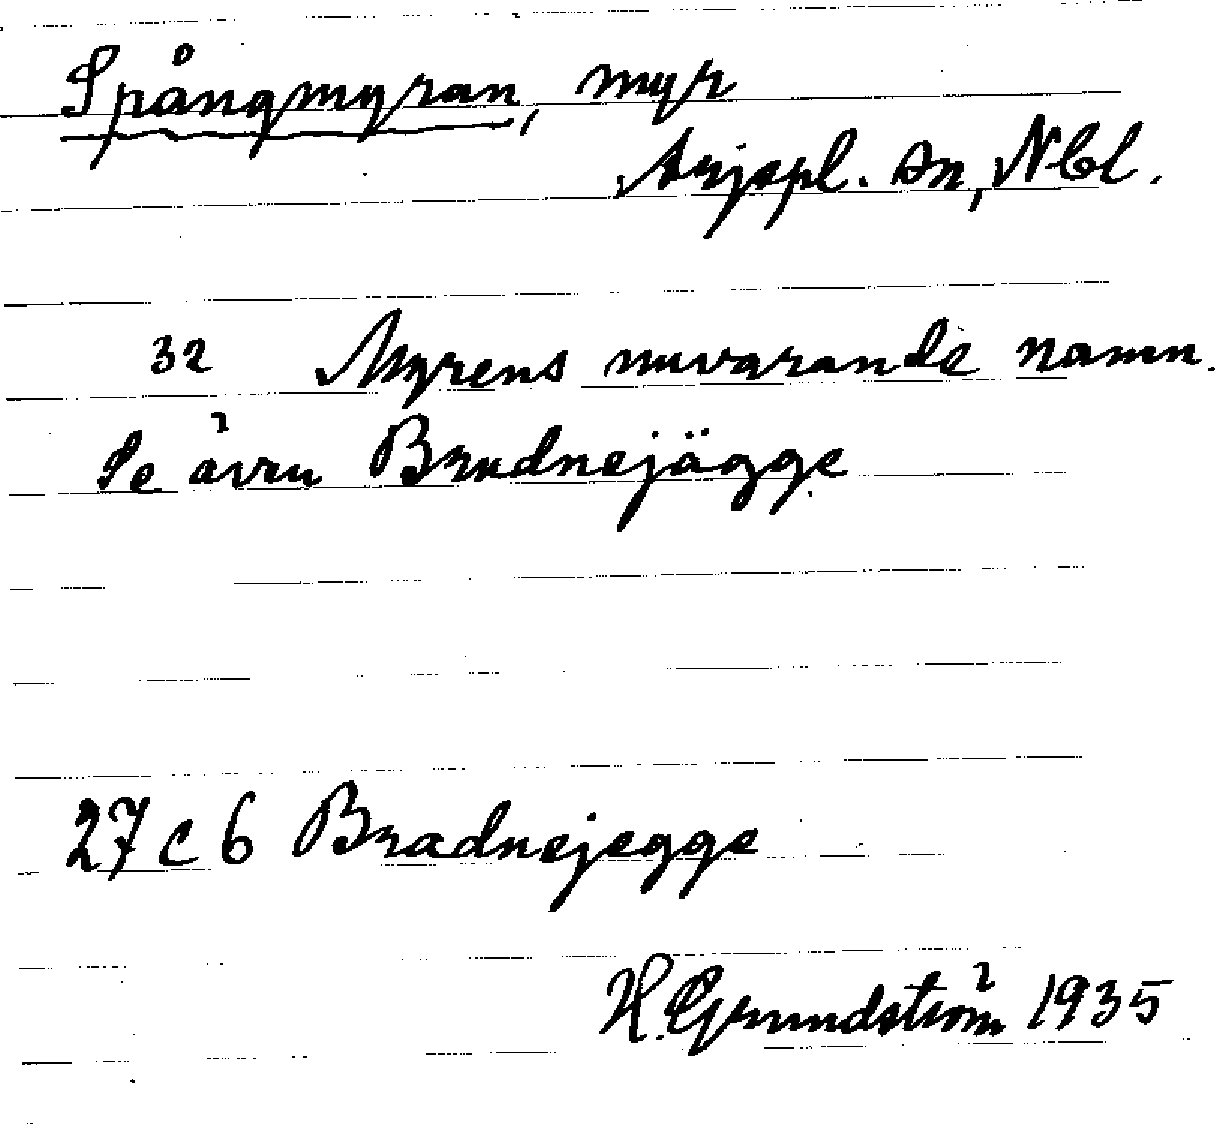 Spångmyran, myr
Arjepl. sn, Nbl.
32 Myrens nuvarande namn.
Se även Brudnejägge
27 c 6 Bradnejegge
H. Grundström 1935